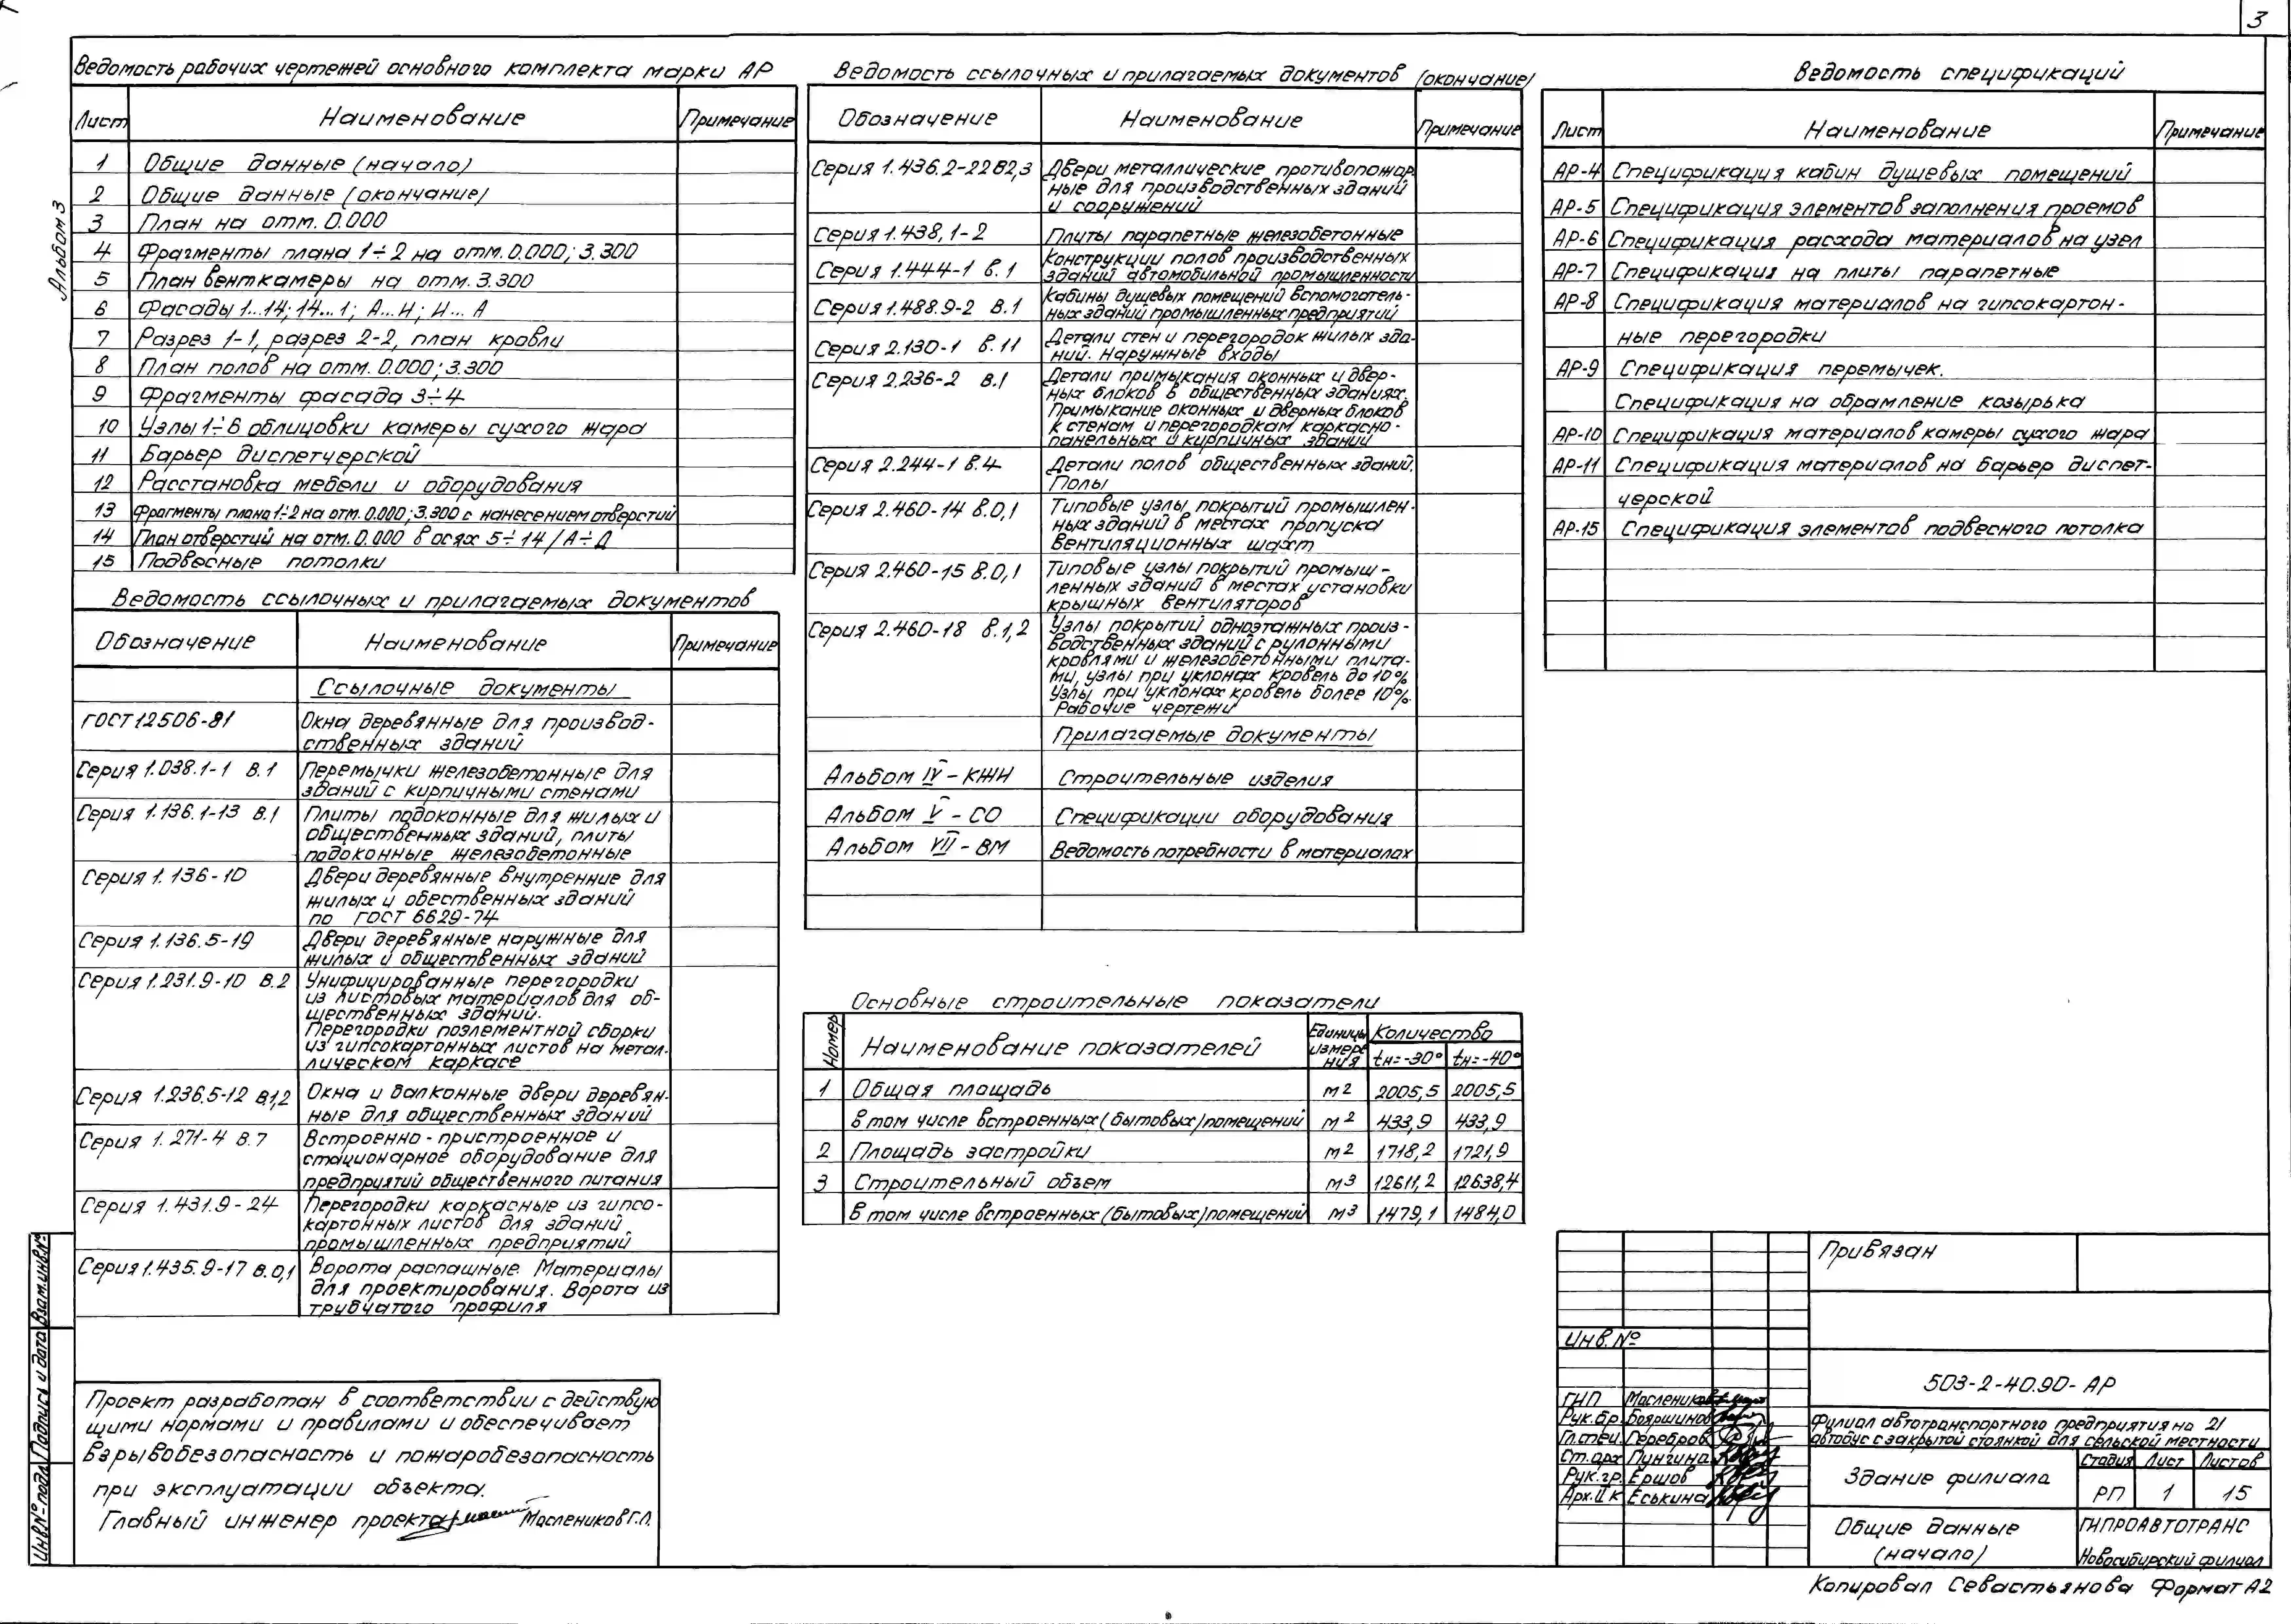 3
Альбом 3
Ведомость рабочих чертежей основного комплекта марки АР
Лист Наименование Примечание
1 Общие данные (начало)
2 Общие данные (окончание)
3 План на отм. 0.000
4 Фрагменты плана 1÷2 на отм. 0.000; 3.300
5 План венткамеры на отм. 3.300
6 Фасады 1...14; 14...1; А...И; И...А
7 Разрез 1-1, разрез 2-2, план кровли
8 План полов на отм. 0.000; 3.300
9 Фрагменты фасада 3÷4
10 Узлы 1÷6 облицовки камеры сухого жара
11 Барьер диспетчерской
12 Расстановка мебели и оборудования
13 Фрагменты плана 1÷2 на отм. 0.000; 3.300 с нанесением отверстий
14 План отверстий на отм. 0.000 в осях 5÷14/А÷Д
15 Подвесные потолки
Ведомость ссылочных и прилагаемых документов
Обозначение Наименование Примечание
Ссылочные документы
ГОСТ 12506-81 Окна деревянные для производ-
ственных зданий
Серия 1.038.1-1 в.1 Перемычки железобетонные для
зданий с кирпичными стенами
Серия 1.136.1-13 в.1 Плиты подоконные для жилых и
общественных зданий, плиты
подоконные железобетонные
Серия 1.136-10 Двери деревянные внутренние для
жилых и обественных зданий
по ГОСТ 6629-74
Серия 1.136.5-19 Двери деревянные наружные для
жилых и общественных зданий
Серия 1.231.9-10 в.2 Унифицированные перегородки
из листовых материалов для об-
щественных зданий.
Перегородки поэлементной сборки
из гипсокартонных листов на метал-
лическом каркасе
Серия 1.236.5-12 в.1,2 Окна и балконные двери деревян-
ные для общественных зданий
Серия 1.271-4 в.7 Встроенно-пристроенное и
стационарное оборудование для
предприятий общественного питания
Серия 1.431.9-24 Перегородки каркасные из гипсо-
картонных листов для зданий
промышленных предприятий
Серия 1.435.9-17 в.0,1 Ворота распашные. Материалы
для проектирования. Ворота из
трубчатого профиля
Ведомость ссылочных и прилагаемых документов (окончание)
Обозначение Наименование Примечание
Серия 1.436.2-22 в2,3 Двери металлические противопожар
ные для производственных зданий
и сооружений
Серия 1.438.1-2 Плиты парапетные железобетонные
Серия 1.444-1 в.1 Конструкции полов производственных
зданий автомобильной промышленности
Серия 1.488.9-2 в.1 Кабины душевых помещений вспомогатель-
ных зданий промышленных предприятий
Серия 2.130-1 в.11 Детали стен и перегородок жилых зда-
ний. Наружные входы
Серия 2.236-2 в.1 Детали примыкания оконных и двер-
ных блоков в общественных зданиях.
Примыкание оконных и дверных блоков
к стенам и перегородкам каркасно-
панельных и кирпичных зданий
Серия 2.244-1 в.4 Детали полов общественных зданий.
Полы
Серия 2.460-14 в.0,1 Типовые узлы покрытий промышлен-
ных зданий в местах пропуска
вентиляционных шахт
Серия 2.460-15 в.0,1 Типовые узлы покрытий промыш-
ленных зданий в местах установки
крышных вентиляторов
Серия 2.460-18 в.1,2 Узлы покрытий одноэтажных произ-
водственных зданий с рулонными
кровлями и железобетонными плита-
ми, узлы при уклонах кровель до 10%
Узлы при уклонах кровель более 10%.
Рабочие чертежи
Прилагаемые документы
Альбом IV - КЖИ Строительные изделия
Альбом V - СО Спецификации оборудования
Альбом VII - ВМ Ведомость потребности в материалах
Основные строительные показатели
Номер Наименование показателей Единицы измерения Количество
tн=-30° tн=-40°
1 Общая площадь м2 2005,5 2005,5
в том числе встроенных (бытовых) помещений м2 433,9 433,9
2 Площадь застройки м2 1718,2 1721,9
3 Строительный объем м3 12611,2 12638,4
в том числе встроенных (бытовых) помещений м3 1479,1 1484,0
Ведомость спецификаций
Лист Наименование Примечание
АР-4 Спецификация кабин душевых помещений
АР-5 Спецификация элементов заполнения проемов
АР-6 Спецификация расхода материалов на узел
АР-7 Спецификация на плиты парапетные
АР-8 Спецификация материалов на гипсокартон-
ные перегородки
АР-9 Спецификация перемычек.
Спецификация на обрамление козырька
АР-10 Спецификация материалов камеры сухого жара
АР-11 Спецификация материалов на барьер диспет-
черской
АР-15 Спецификация элементов подвесного потолка
Проект разработан в соответствии с действую
щими нормами и правилами и обеспечивает
взрывобезопасность и пожаробезопасность
при эксплуатации объекта.
Главный инженер проекта Маслеников Г.Л.
Инв.№ подл. Подпись и дата Взам.инв.№
Привязан
Инв.№
503-2-40.90- АР
ГИП Маслеников
Рук.бр. Бояршинов
Гл.спец. Геребров
Ст.арх Пунгина
Рук.гр. Ершов
Арх.IIк Еськина
Филиал автотранспортного предприятия на 21
автобус с закрытой стоянкой для сельской местности
Здание филиала
Стадия Лист Листов
РП 1 15
Общие данные
(начало)
ГИПРОАВТОТРАНС
Новосибирский филиал
Копировал Севастьянова Формат А2